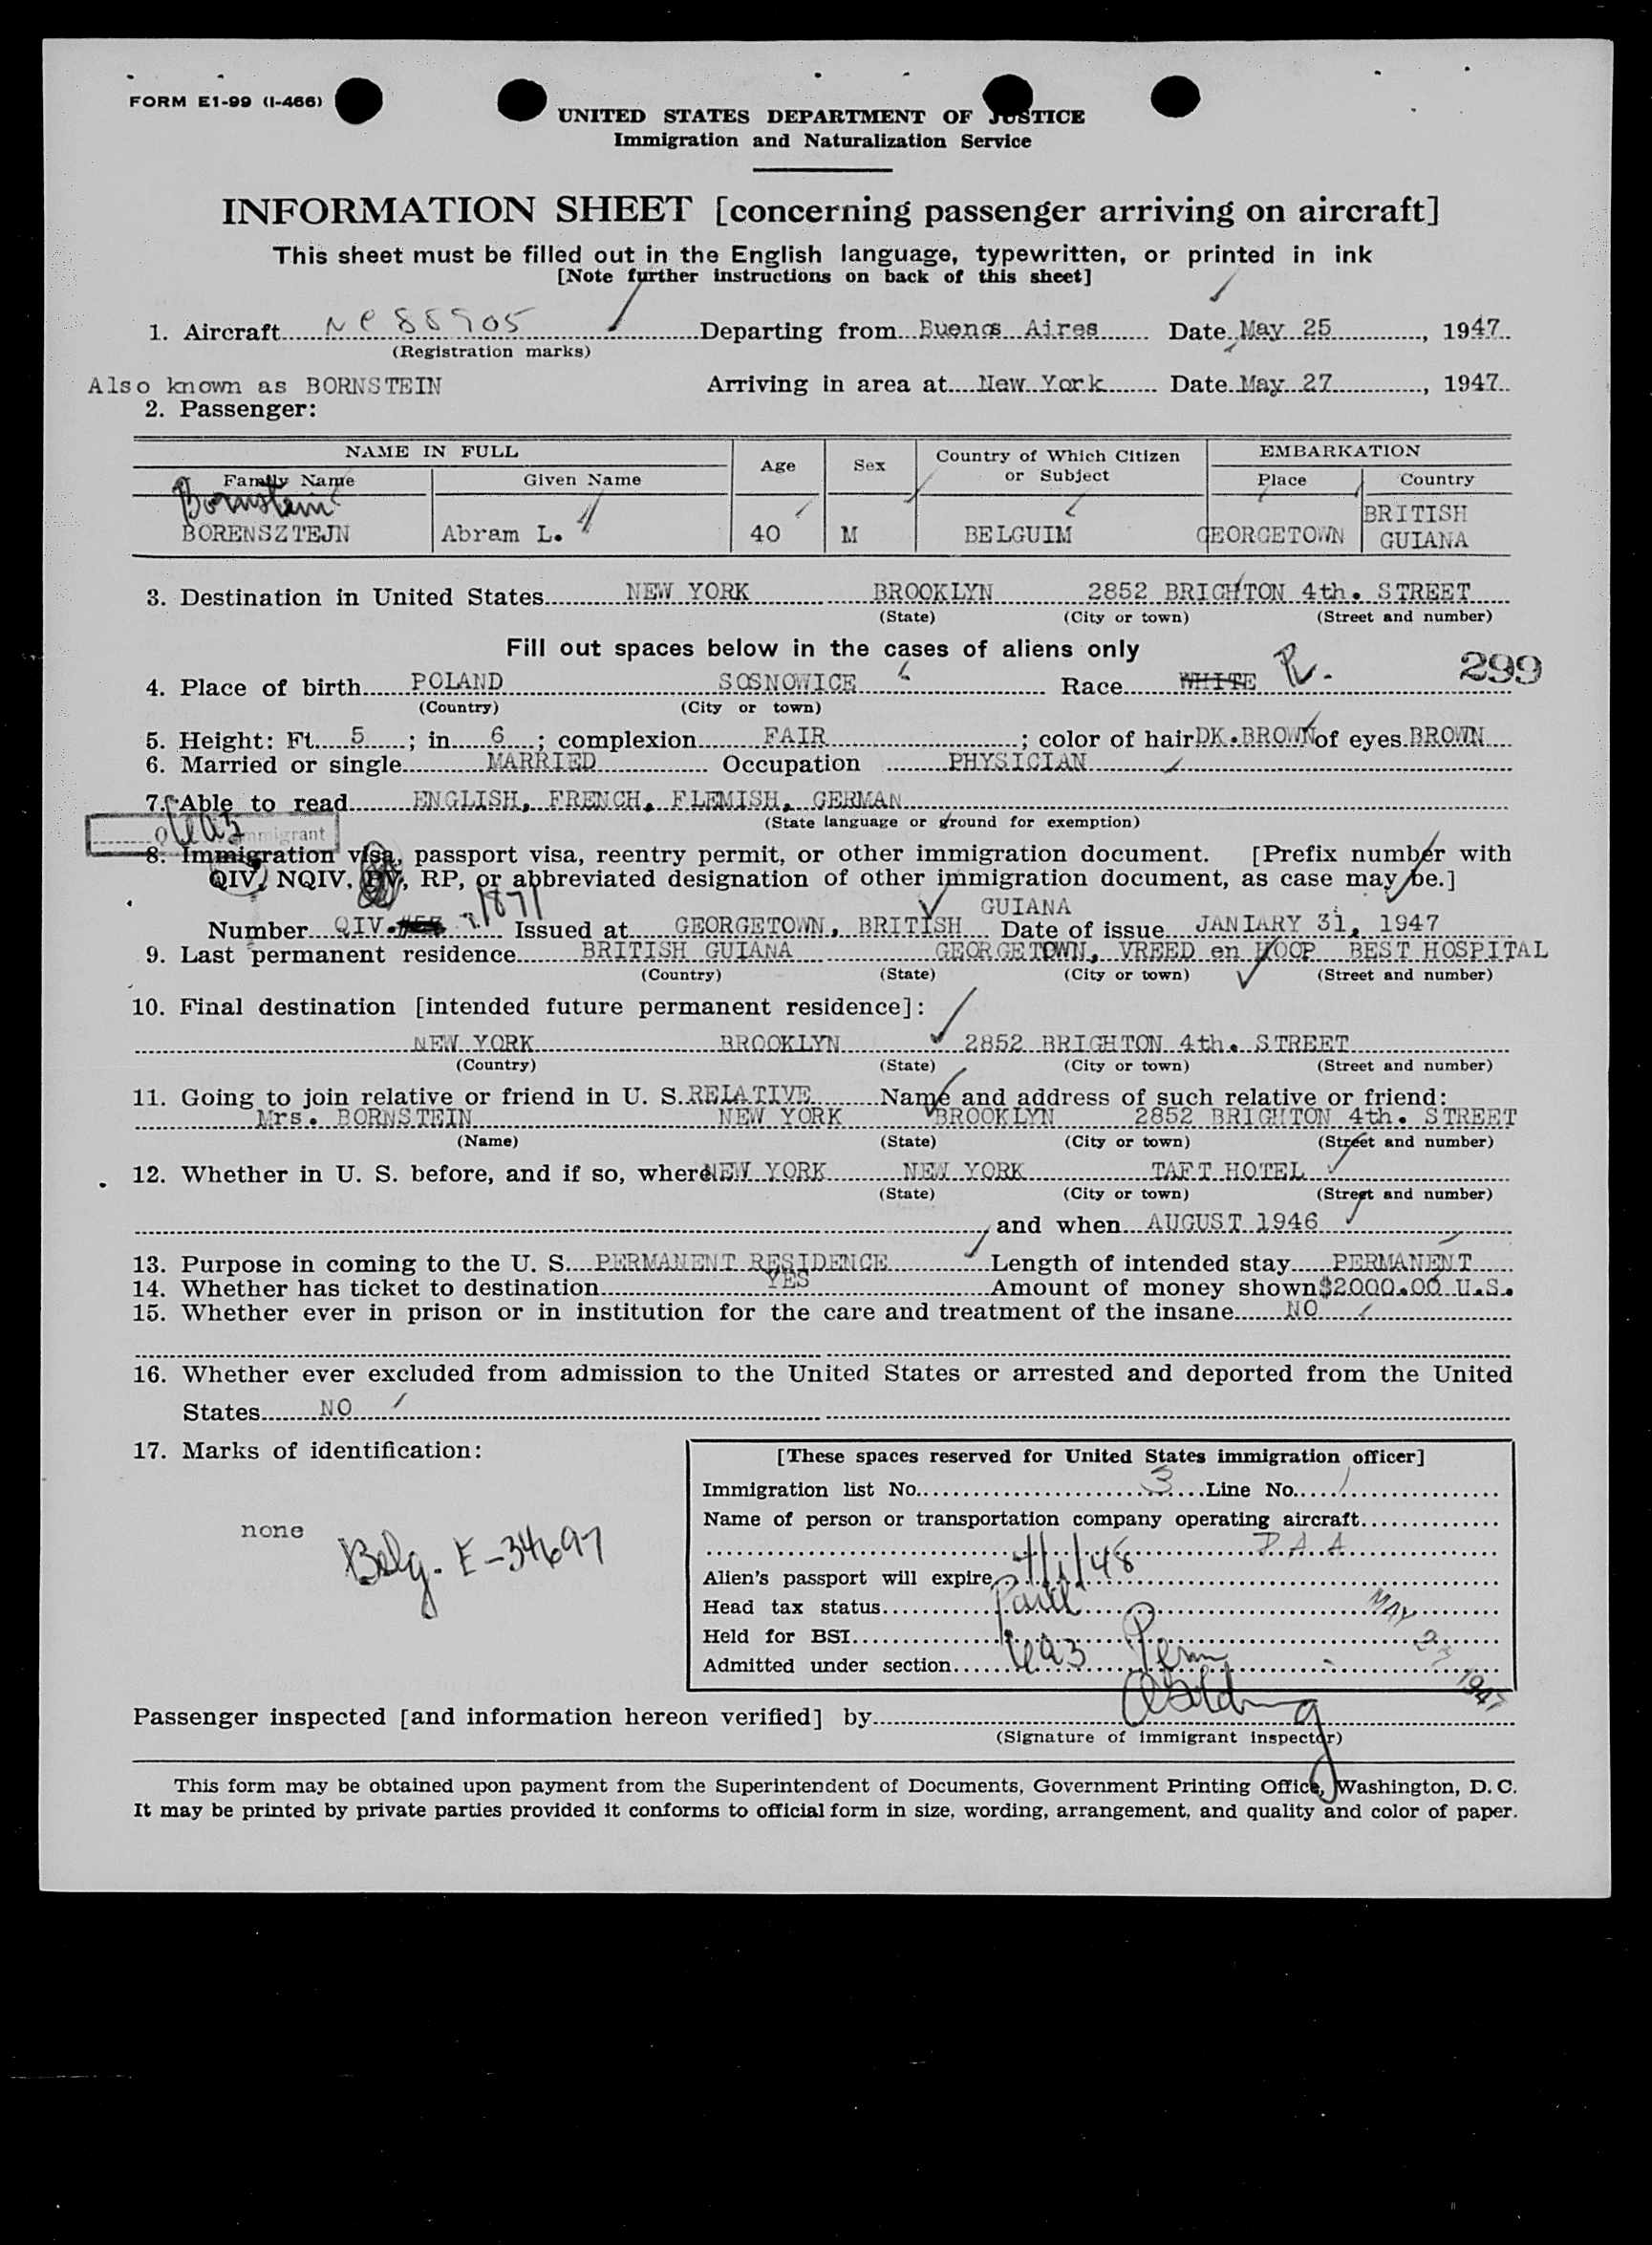 FORM E1-99 (I-466)
UNITED STATES DEPARTMENT OF JUSTICE
Immigration and Naturalization Service
INFORMATION SHEET [concerning passenger arriving on aircraft]
This sheet must be filled out in the English language, typewritten, or printed in ink
[Note further instructions on back of this sheet]
1. Aircraft NC 88905 Departing from Buenos Aires Date May 25, 1947
(Registration marks)
Also known as BORNSTEIN Arriving in area at New York Date May 27, 1947
2. Passenger:
NAME IN FULL Age Sex Country of Which Citizen or Subject EMBARKATION
Family Name Given Name Place Country
Bornstein
BORENSZTEJN Abram L. 40 M BELGUIM GEORGETOWN BRITISH GUIANA
3. Destination in United States NEW YORK BROOKLYN 2852 BRIGHTON 4th. STREET
(State) (City or town) (Street and number)
Fill out spaces below in the cases of aliens only
299
4. Place of birth POLAND SOSNOWICE Race WHITE
(Country) (City or town)
5. Height: Ft. 5; in. 6; complexion FAIR; color of hair DK.BROWN of eyes BROWN
6. Married or single MARRIED Occupation PHYSICIAN
7. Able to read ENGLISH, FRENCH, FLEMISH, GERMAN
(State language or ground for exemption)
8. Immigration visa, passport visa, reentry permit, or other immigration document. [Prefix number with
QIV, NQIV, PV, RP, or abbreviated designation of other immigration document, as case may be.]
Number QIV. Issued at GEORGETOWN, BRITISH GUIANA Date of issue JANIARY 31, 1947
9. Last permanent residence BRITISH GUIANA GEORGETOWN, VREED en HOOP BEST HOSPITAL
(Country) (State) (City or town) (Street and number)
10. Final destination [intended future permanent residence]:
NEW YORK BROOKLYN 2852 BRIGHTON 4th. STREET
(Country) (State) (City or town) (Street and number)
11. Going to join relative or friend in U. S. RELATIVE Name and address of such relative or friend:
Mrs. BORNSTEIN NEW YORK BROOKLYN 2852 BRIGHTON 4th. STREET
(Name) (State) (City or town) (Street and number)
12. Whether in U. S. before, and if so, where NEW YORK NEW YORK TAFT HOTEL
(State) (City or town) (Street and number)
and when AUGUST 1946
13. Purpose in coming to the U. S. PERMANENT RESIDENCE Length of intended stay PERMANENT
14. Whether has ticket to destination YES Amount of money shown $2000.00 U.S.
15. Whether ever in prison or in institution for the care and treatment of the insane NO
16. Whether ever excluded from admission to the United States or arrested and deported from the United
States NO
17. Marks of identification:
none
Belg. E-34697
[These spaces reserved for United States immigration officer]
Immigration list No. 3 Line No. 1
Name of person or transportation company operating aircraft
P A A
Alien's passport will expire
Head tax status Paid
Held for BSI
Admitted under section 4a3 Perm
MAY 27 1947
Passenger inspected [and information hereon verified] by
(Signature of immigrant inspector)
This form may be obtained upon payment from the Superintendent of Documents, Government Printing Office, Washington, D. C.
It may be printed by private parties provided it conforms to official form in size, wording, arrangement, and quality and color of paper.